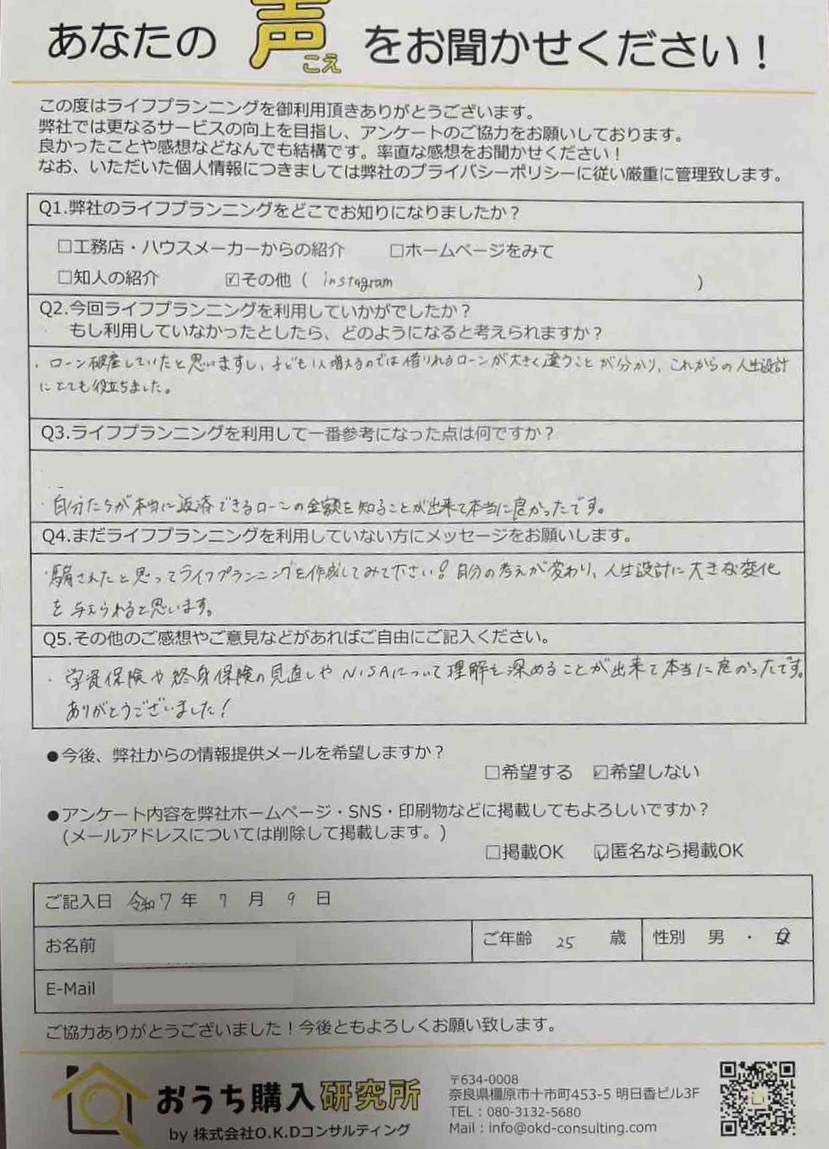 あなたの 声 をお聞かせください！
こえ
この度はライフプランニングを御利用頂きありがとうございます。
弊社では更なるサービスの向上を目指し、アンケートのご協力をお願いしております。
良かったことや感想などなんでも結構です。率直な感想をお聞かせください！
なお、いただいた個人情報につきましては弊社のプライバシーポリシーに従い厳重に管理致します。
Q1.弊社のライフプランニングをどこでお知りになりましたか？
□工務店・ハウスメーカーからの紹介 □ホームページをみて
□知人の紹介 ☑その他（ instagram ）
Q2.今回ライフプランニングを利用していかがでしたか？
もし利用していなかったとしたら、どのようになると考えられますか？
・ローン破産していたと思いますし、子ども1人増えるのでは借りれるローンが大きく違うことが分かり、これからの人生設計
にとても役立ちました。
Q3.ライフプランニングを利用して一番参考になった点は何ですか？
・自分たちが本当に返済できるローンの金額を知ることが出来て本当に良かったです。
Q4.まだライフプランニングを利用していない方にメッセージをお願いします。
・騙されたと思ってライフプランニングを作成してみて下さい！自分の考えが変わり、人生設計に大きな変化
を与えられると思います。
Q5.その他のご感想やご意見などがあればご自由にご記入ください。
・学資保険や終身保険の見直しやNISAについて理解を深めることが出来て本当に良かったです。
ありがとうございました！
●今後、弊社からの情報提供メールを希望しますか？
□希望する ☑希望しない
●アンケート内容を弊社ホームページ・SNS・印刷物などに掲載してもよろしいですか？
(メールアドレスについては削除して掲載します。)
□掲載OK ☑匿名なら掲載OK
ご記入日 令和7年 7月 9日
お名前 ご年齢 25 歳 性別 男 ・ 女
E-Mail
ご協力ありがとうございました！今後ともよろしくお願い致します。
おうち購入研究所
by 株式会社O.K.Dコンサルティング
〒634-0008
奈良県橿原市十市町453-5 明日香ビル3F
TEL：080-3132-5680
Mail：info@okd-consulting.com